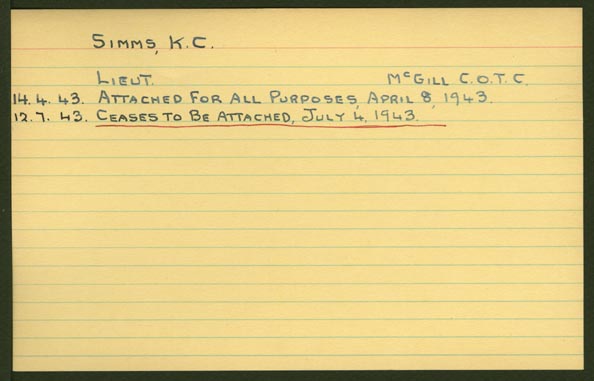 SIMMS, K.C.
LIEUT. McGILL C.O.T.C.
14.4.43. ATTACHED FOR ALL PURPOSES, APRIL 8, 1943.
12.7.43. CEASES TO BE ATTACHED, JULY 4, 1943.